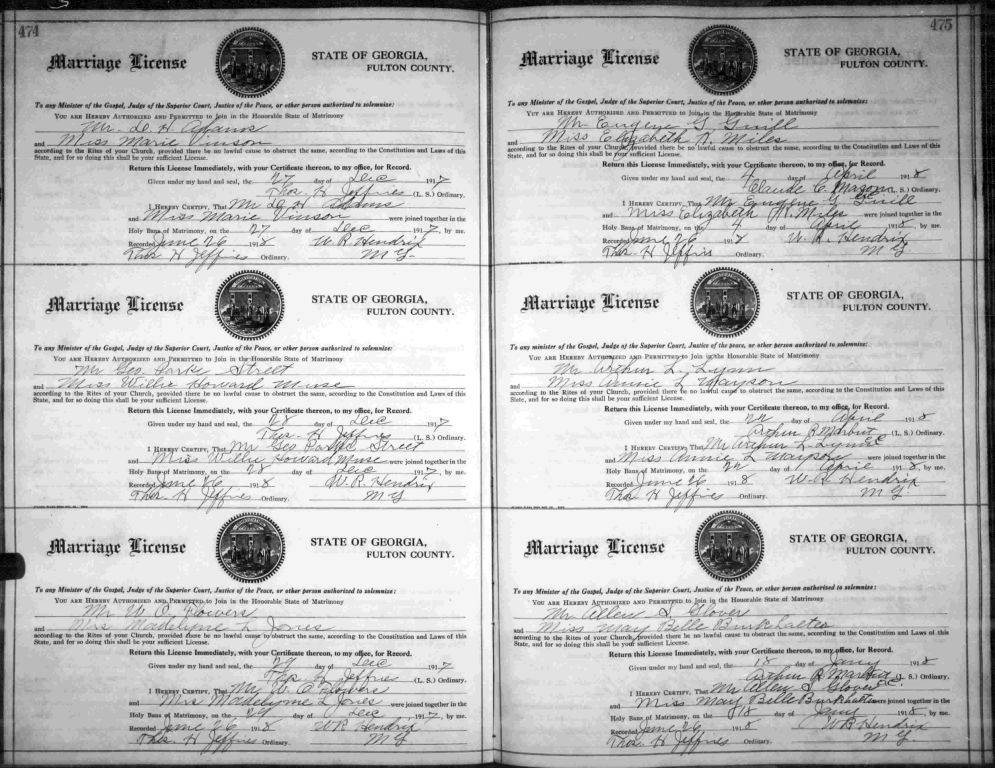 474
Marriage License
STATE OF GEORGIA,
FULTON COUNTY.
To any Minister of the Gospel, Judge of the Superior Court, Justice of the Peace, or other person authorized to solemnize:
YOU ARE HEREBY AUTHORIZED AND PERMITTED to Join in the Honorable State of Matrimony
Mr. D. H. Adams
and Miss Marie Vinson
according to the Rites of your Church, provided there be no lawful cause to obstruct the same, according to the Constitution and Laws of this
State, and for so doing this shall be your sufficient License.
Return this License Immediately, with your Certificate thereon, to my office, for Record.
Given under my hand and seal, the 27 day of Dec 1917
Thos. H Jeffries (L. S.) Ordinary.
I HEREBY CERTIFY, That Mr D. H Adams
and Miss Marie Vinson were joined together in the
Holy Bans of Matrimony, on the 27 day of Dec 1917, by me.
Recorded June 26 1918 W. R. Hendrix
Thos. H Jeffries Ordinary. M G.
Marriage License
STATE OF GEORGIA,
FULTON COUNTY.
To any Minister of the Gospel, Judge of the Superior Court, Justice of the peace, or other person authorized to solemnize:
YOU ARE HEREBY AUTHORIZED AND PERMITTED to Join in the Honorable State of Matrimony
Mr Geo. Parks Street
and Miss Willie Howard Muse
according to the Rites of your Church, provided there be no lawful cause to obstruct the same, according to the Constitution and Laws of this
State, and for so doing this shall be your sufficient License.
Return this License Immediately, with your Certificate thereon, to my office, for Record.
Given under my hand and seal, the 28 day of Dec 1917
Thos. H Jeffries (L. S.) Ordinary.
I HEREBY CERTIFY, That Mr Geo Parks Street
and Miss Willie Howard Muse were joined together in the
Holy Bans of Matrimony, on the 28 day of Dec 1917, by me.
Recorded June 26 1918 W. R. Hendrix
Thos. H Jeffries Ordinary. M G
Marriage License
STATE OF GEORGIA,
FULTON COUNTY.
To any Minister of the Gospel, Judge of the Superior Court, Justice of the Peace, or other person authorized to solemnize:
YOU ARE HEREBY AUTHORIZED AND PERMITTED to Join in the Honorable State of Matrimony
Mr W. O. Flowers
and Mrs Madelyne L Jones
according to the Rites of your Church, provided there be no lawful cause to obstruct the same, according to the Constitution and Laws of this
State, and for so doing this shall be your sufficient License.
Return this License Immediately, with your Certificate thereon, to my office, for Record.
Given under my hand and seal, the 29 day of Dec 1917
Thos H Jeffries (L. S.) Ordinary.
I HEREBY CERTIFY, That Mr W. O Flowers
and Mrs Madelyne L Jones were joined together in the
Holy Bans of Matrimony, on the 29 day of Dec 1917, by me.
Recorded June 26 1918 W R Hendrix
Thos. H Jeffries Ordinary. M G
475
Marriage License
STATE OF GEORGIA,
FULTON COUNTY.
To any Minister of the Gospel, Judge of the Superior Court, Justice of the Peace, or other person authorized to solemnize:
YOU ARE HEREBY AUTHORIZED AND PERMITTED to Join in the Honorable State of Matrimony
Mr Eugene G. Guill
and Miss Elizabeth N. Miles
according to the Rites of your Church, provided there be no lawful cause to obstruct the same, according to the Constitution and Laws of this
State, and for so doing this shall be your sufficient License.
Return this License Immediately, with your Certificate thereon, to my office, for Record.
Given under my hand and seal, the 4 day of April 1918
Claude C. Mason (L. S.) Ordinary.
I HEREBY CERTIFY, That Mr Eugene G. Guill
and Miss Elizabeth N. Miles were joined together in the
Holy Bans of Matrimony, on the 4 day of April 1918, by me.
Recorded June 26 1918 W. R. Hendrix
Thos. H Jeffries Ordinary. M G
Marriage License
STATE OF GEORGIA,
FULTON COUNTY.
To any Minister of the Gospel, Judge of the Superior Court, Justice of the peace, or other person authorized to solemnize:
YOU ARE HEREBY AUTHORIZED AND PERMITTED to Join in the Honorable State of Matrimony
Mr Arthur L. Lynn
and Miss Annie L Mayson
according to the Rites of your Church, provided there be no lawful cause to obstruct the same, according to the Constitution and Laws of this
State, and for so doing this shall be your sufficient License.
Return this License Immediately, with your Certificate thereon, to my office, for Record.
Given under my hand and seal, the 24 day of April 1918
Arthur R Marbut (L. S.) Ordinary.
I HEREBY CERTIFY, That Mr Arthur L Lynn
and Miss Annie L Mayson were joined together in the
Holy Bans of Matrimony, on the 24 day of April 1918, by me.
Recorded June 26 1918 W. R. Hendrix
Thos H Jeffries Ordinary. M G
Marriage License
STATE OF GEORGIA,
FULTON COUNTY.
To any Minister of the Gospel, Judge of the Superior Court, Justice of the Peace, or other person authorized to solemnize:
YOU ARE HEREBY AUTHORIZED AND PERMITTED to Join in the Honorable State of Matrimony
Mr Allen S Glover
and Miss May Belle Burkhalter
according to the Rites of your Church, provided there be no lawful cause to obstruct the same, according to the Constitution and Laws of this
State, and for so doing this shall be your sufficient License.
Return this License Immediately, with your Certificate thereon, to my office, for Record.
Given under my hand and seal, the 18 day of Jany 1918
Arthur R Marbut (L. S.) Ordinary.
I HEREBY CERTIFY, That Mr Allen S Glover
and Miss May Belle Burkhalter were joined together in the
Holy Bans of Matrimony, on the 18 day of Jany 1918, by me.
Recorded June 26 1918 W R Hendrix
Thos. H Jeffries Ordinary. M G